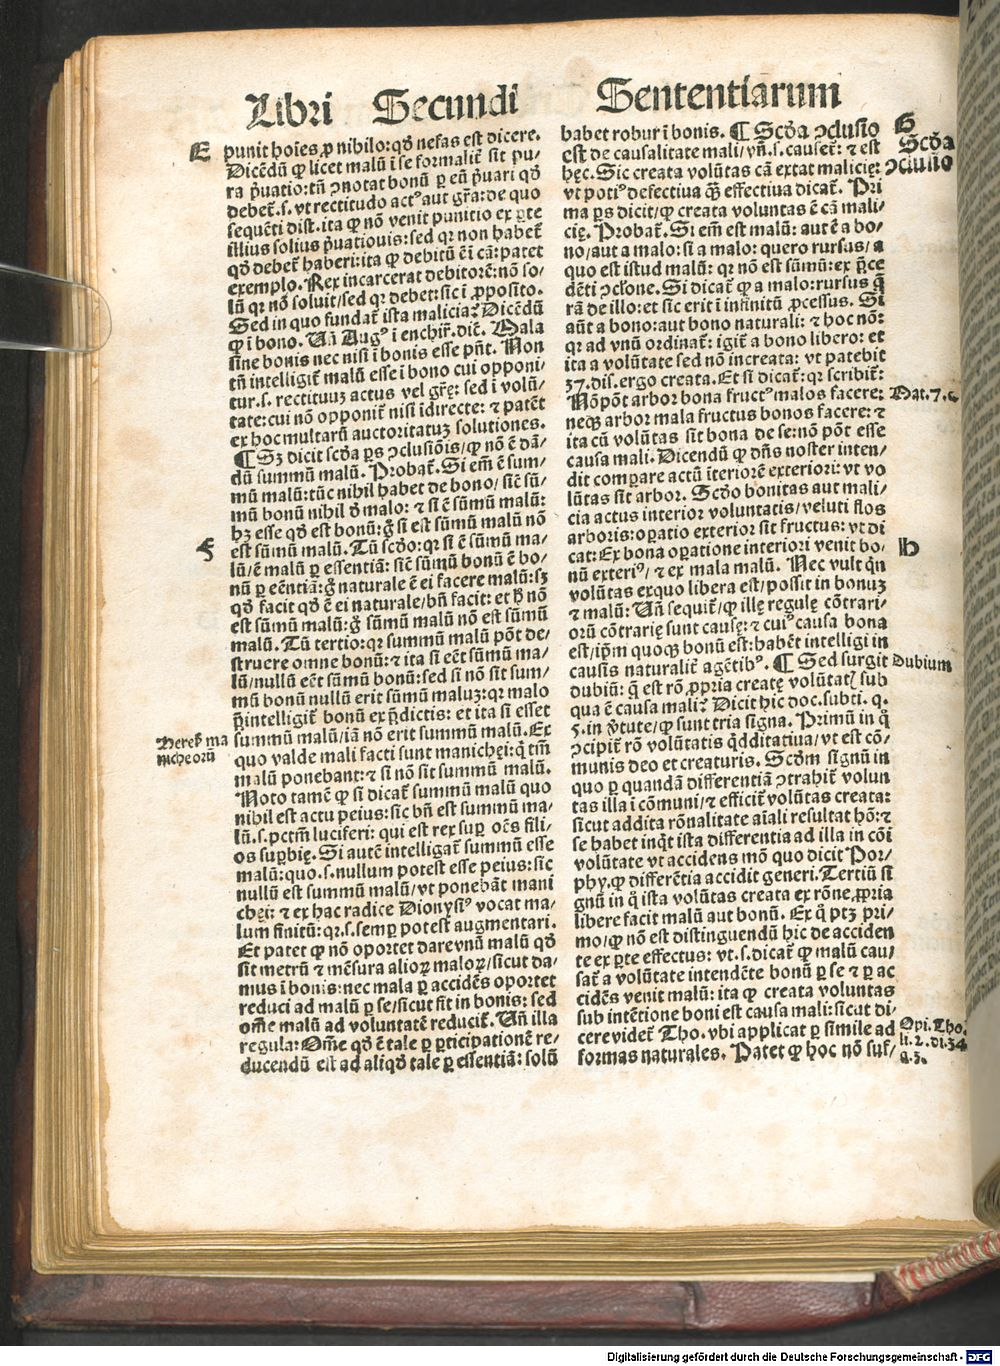 Libri Secundi Sententiarum
E
punit hoīes ꝓ nihilo: qḋ nefas est dicere.
Dicēdū ꝙ licet malū ī se formalit̄ sit pu/
ra p̄uatio: tn̄ ↄnotat bonū ꝑ eū p̄uari qḋ
debet̄. s. vt rectitudo actꝰ aut gr̄a: de quo
sequēti dist. ita ꝙ nō venit punitio ex ꝑte
illius solius p̄uatiouis: sed qꝛ non habet̄
qḋ debet̄ haberi: ita ꝙ debitū ē ī cā: patet
exemplo. Rex incarcerat debitorē: nō so/
lū qꝛ nō soluit/ sed qꝛ debet: sic ī ꝓposito.
Sed in quo fundat̄ ista malicia? Dicēdū
ꝙ ī bono. Un̄ Augꝰ ī enchir̄. dic̄. Mala
sine bonis nec nisi ī bonis esse pn̄t. Non
tn̄ intelligit̄ malū esse ī bono cui opponi/
tur. s. rectituuꝫ actus vel gr̄ę: sed ī volū/
tate: cui nō opponit̄ nisi īdirecte: ⁊ patēt
ex hoc multarū auctoritatuꝫ solutiones.
¶ Sꝫ dicit scḋa ꝑs ↄclusiōis/ ꝙ nō ē dā/
dū summū malū. Probat̄. Si em̄ ē sum/
mū malū: tūc nihil habet de bono/ sic̄ sū/
mū bonū nihil ḋ malo: ⁊ si ē sūmū malū:
hꝫ esse qḋ est bonū: ḡ si est sūmū malū nō
F
est sūmū malū. Tū scḋo: qꝛ si ē sūmū ma/
lū/ ē malū ꝑ essentiā: sic̄ sūmū bonū ē bo/
nū ꝑ eēntiā: ḡ naturale ē ei facere malū: sꝫ
qḋ facit qḋ ē ei naturale/ bn̄ facit: et ꝑ nō
est sūmū malū: ḡ sūmū malū nō est sūmū
malū. Tū tertio: qꝛ summū malū pōt de/
struere omne bonū: ⁊ ita si eēt sūmū ma/
lū/ nullū eēt sūmū bonū: sed si nō sit sum/
mū bonū nullū erit sūmū maluꝫ: qꝛ malo
p̄intelligit̄ bonū ex p̄dictis: et ita si esset
Heres̄ ma
nicheorū
summū malū/ iā nō erit summū malū. Ex
quo valde mali facti sunt manichęi: q̇ tm̄
malū ponebant: ⁊ si nō sit summū malū.
Noto tamē ꝙ si dicat̄ summū malū quo
nihil est actu peius: sic bn̄ est summū ma/
lū. s. pctm̄ luciferi: qui est rex suꝑ oēs fili/
os suꝑbię. Si autē intelligat̄ summū esse
malū: quo. s. nullum potest esse peius: sic
nullū est summū malū/ vt ponebāt mani
chęi: ⁊ ex hac radice Dionysiꝰ vocat ma/
lum finitū: qꝛ. s. semꝑ potest augmentari.
Et patet ꝙ nō oportet dare vnū malū qḋ
sit metrū ⁊ mēsura alioꝝ maloꝝ/ sicut da/
mus ī bonis: nec mala ꝑ accidēs oportet
reduci ad malū ꝑ se/ sicut fit in bonis: sed
om̄e malū ad voluntatē reducit̄. Un̄ illa
regula: Om̄e qḋ ē tale ꝑ ꝑticipationē re/
ducendū est ad aliqḋ tale ꝑ essentiā: solū
habet robur ī bonis. ¶ Scḋa ↄclusio
est de causalitate mali/ vn̄. s. causet̄: ⁊ est
hęc. Sic creata volūtas cā extat malicię:
vt potiꝰ defectiua q̄ꝫ effectiua dicat̄. Pri
ma ꝑs dicit/ ꝙ creata voluntas ē cā mali/
cię. Probat̄. Si em̄ est malū: aut ē a bo/
no/ aut a malo: si a malo: quero rursus/ a
quo est istud malū: qꝛ nō est sūmū: ex p̄ce
dēti ↄcłone. Si dicat̄ ꝙ a malo: rursus q̄
rā de illo: et sic erit ī infinitū ꝓcessus. Si
aūt a bono: aut bono naturali: ⁊ hoc nō:
qꝛ ad vnū ordinat̄: igit̄ a bono libero: et
ita a volūtate sed nō increata: vt patebit
37. dis. ergo creata. Et si dicat̄: qꝛ scribit̄:
Nō pōt arbor bona fructꝰ malos facere:
neqꝫ arbor mala fructus bonos facere: ⁊
ita cū volūtas sit bona de se: nō pōt esse
causa mali. Dicendū ꝙ dn̄s noster inten/
dit comꝑare actū īteriorē exteriori: vt vo
lūtas sit arbor. Scḋo bonitas aut mali/
cia actus interior voluntatis/ veluti flos
arboris: oꝑatio exterior sit fructus: vt di
cat: Ex bona oꝑatione interiori venit bo/
nū exteriꝰ/ ⁊ ex mala malū. Nec vult q̇n
volūtas exquo libera est/ possit in bonuꝫ
⁊ malū: Un̄ sequit̄/ ꝙ illę regulę cōtrari/
orū cōtrarię sunt causę: ⁊ cuiꝰ causa bona
est/ ip̄m quoqꝫ bonū est: habēt intelligi in
causis naturalit̄ agētibꝰ. ¶ Sed surgit
dubiū: q̄ est rō ꝓpria creatę volūtat̄/ sub
qua ē causa mali? Dicit hic doc. subti. q.
5. in v̄tute/ ꝙ sunt tria signa. Primū in q̊
ↄcipit̄ rō volūtatis q̇dditatiua/ vt est cō/
munis deo et creaturis. Scḋm signū in
quo ꝑ quandā differentiā ↄtrahit̄ volun
tas illa ī cōmuni/ ⁊ efficit̄ volūtas creata:
sicut addita rōnalitate aīali resultat hō: ⁊
se habet inq̇t ista differentia ad illa in cōi
volūtate vt accidens mō quo dicit Por/
phy. ꝙ differētia accidit generi. Tertiū si
gnū in q̊ ista volūtas creata ex rōne ꝓpria
libere facit malū aut bonū. Ex q̊ ptꝫ pri/
mo/ ꝙ nō est distinguendū hic de acciden
te ex ꝑte effectus: vt. s. dicat̄ ꝙ malū cau/
sat̄ a volūtate intendēte bonū ꝑ se ⁊ ꝑ ac
cidēs venit malū: ita ꝙ creata voluntas
sub intētione boni est causa mali: sicut di/
cere videt̄ Tho. vbi applicat ꝑ simile ad
formas naturales. Patet ꝙ hoc nō suf/
G
Scḋa
ↄclusio
Mat. 7. c
H
Dubium
Opi. Tho.
li. 2. di. 34
q. 3.
Digitalisierung gefördert durch die Deutsche Forschungsgemeinschaft - DFG